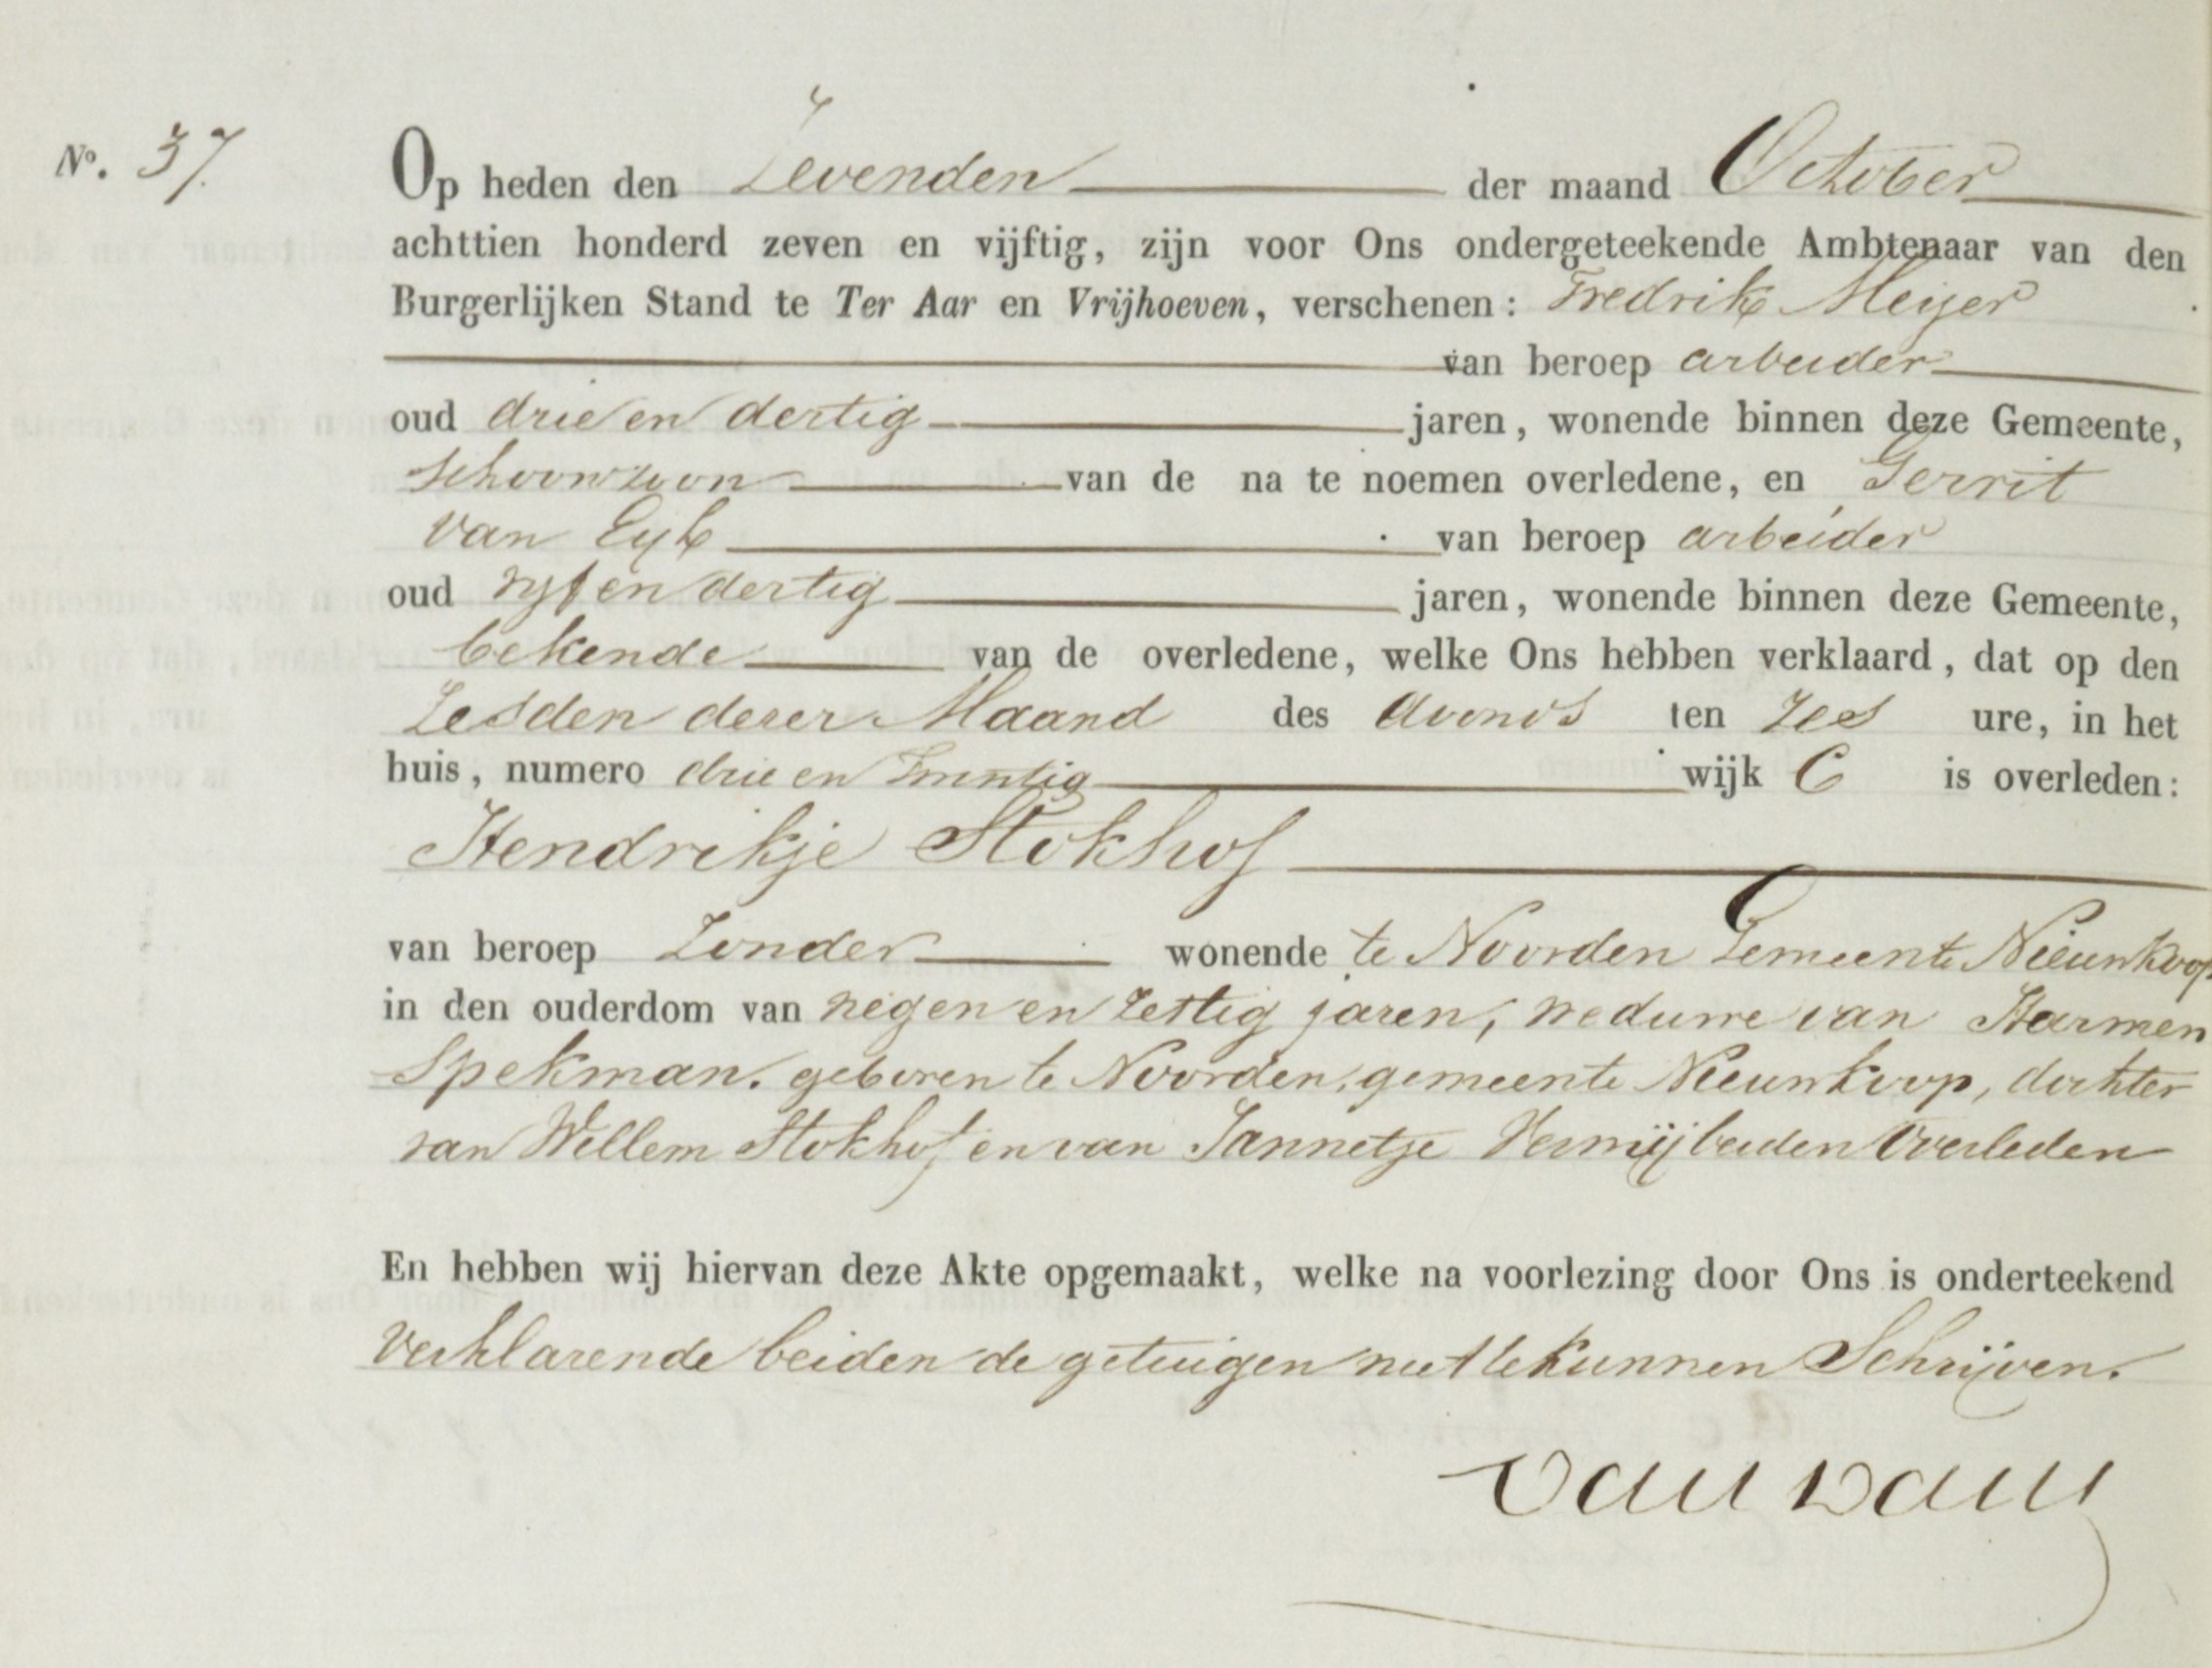 No. 37.
Op heden den Zevenden der maand October
achttien honderd zeven en vijftig, zijn voor Ons ondergeteekende Ambtenaar van den
Burgerlijken Stand te Ter Aar en Vrijhoeven, verschenen: Fredrik Meijer
van beroep arbeider
oud drie en dertig jaren, wonende binnen deze Gemeente,
schoonzoon van de na te noemen overledene, en Gerrit
van Eyk van beroep arbeider
oud vyf en dertig jaren, wonende binnen deze Gemeente,
bekende van de overledene, welke Ons hebben verklaard, dat op den
Zesden dezer Maand des avonds ten zes ure, in het
huis, numero drie en twintig wijk C is overleden:
Hendrikje Stokhof
van beroep Zonder wonende te Noorden Gemeente Nieuwkoop
in den ouderdom van negen en zestig jaren, weduwe van Harmen
Spekman. geboren te Noorden, gemeente Nieuwkoop, dochter
van Willem Stokhof en van Jannetje Vermij beiden Overleden
En hebben wij hiervan deze Akte opgemaakt, welke na voorlezing door Ons is onderteekend
Verklarende beiden de getuigen niet te kunnen Schrijven.
van Dam